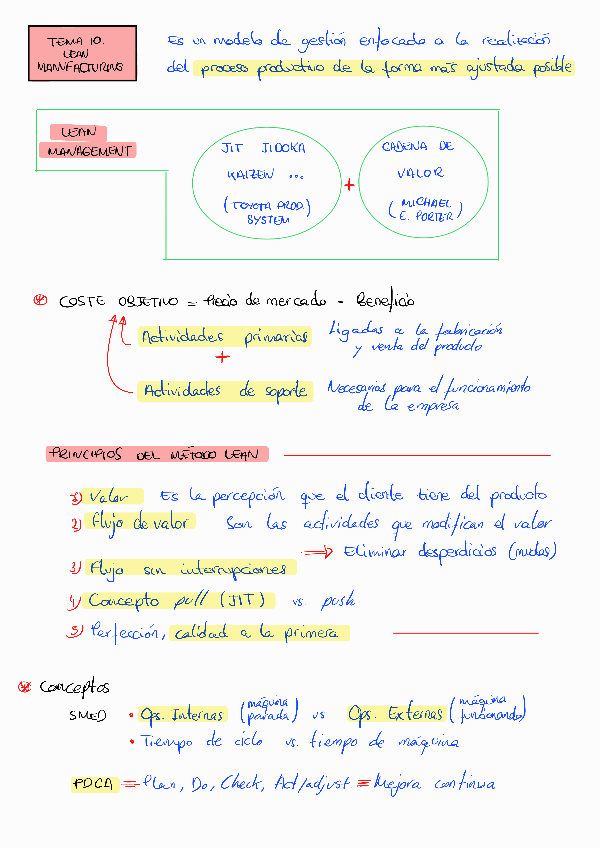 TEMA 10.
LEAN
MANUFACTURING
Es un modelo de gestión enfocado a la realización
del proceso productivo de la forma más ajustada posible
LEAN
MANAGEMENT
JIT JIDOKA
KAIZEN ...
(TOYOTA PROD.)
SYSTEM
+
CADENA DE
VALOR
(MICHAEL
E. PORTER)
COSTE OBJETIVO = Precio de mercado - Beneficio
Actividades primarias Ligadas a la fabricación
y venta del producto
+
Actividades de soporte Necesarias para el funcionamiento
de la empresa
PRINCIPIOS DEL MÉTODO LEAN
1) Valor Es la percepción que el cliente tiene del producto
2) Flujo de valor Son las actividades que modifican el valor
⇒ Eliminar desperdicios (mudas)
3) Flujo sin interrupciones
4) Concepto pull (JIT) vs push
5) Perfección, calidad a la primera
Conceptos
SMED • Ops. Internas (máquina parada) vs Ops. Externas (máquina funcionando)
• Tiempo de ciclo vs. tiempo de máquina
PDCA = Plan, Do, Check, Act/adjust ≡ Mejora continua